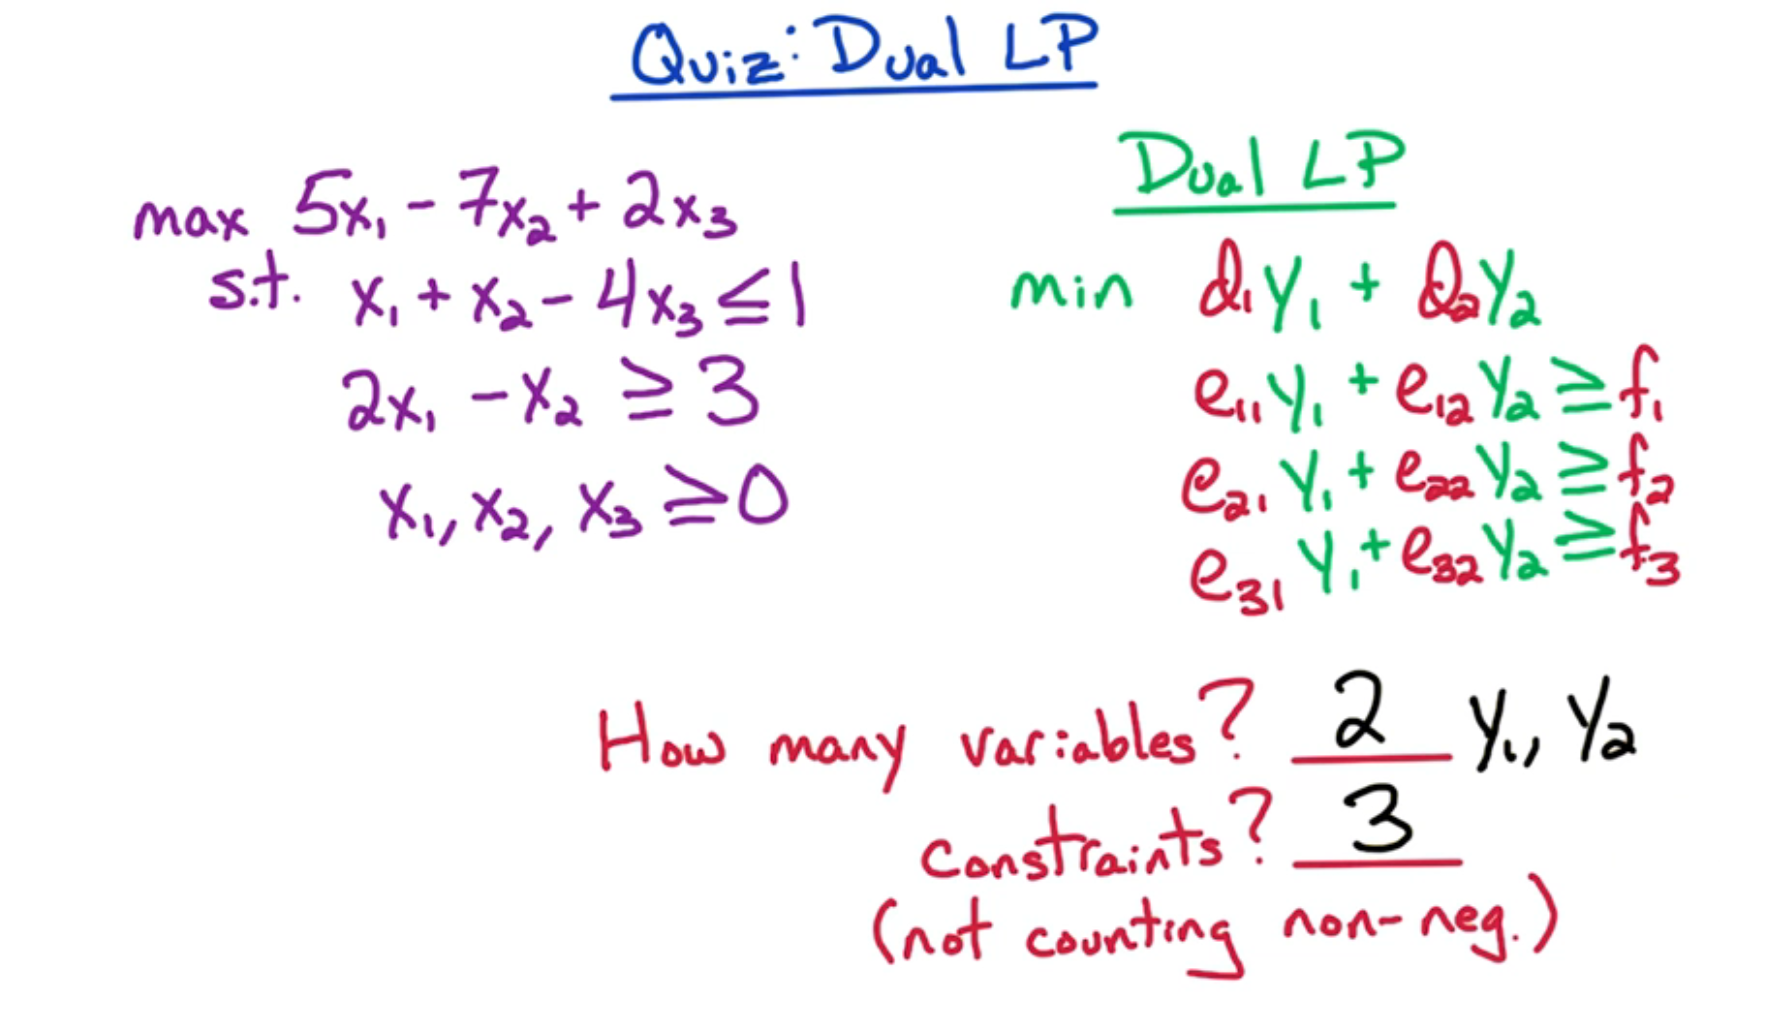 Quiz: Dual LP
max 5x₁ - 7x₂ + 2x₃
s.t. x₁ + x₂ - 4x₃ ≤ 1
2x₁ - x₂ ≥ 3
x₁, x₂, x₃ ≥ 0
Dual LP
min d₁y₁ + d₂y₂
e₁₁y₁ + e₁₂y₂ ≥ f₁
e₂₁y₁ + e₂₂y₂ ≥ f₂
e₃₁y₁ + e₃₂y₂ ≥ f₃
How many variables? 2 y₁, y₂
constraints? 3
(not counting non-neg.)